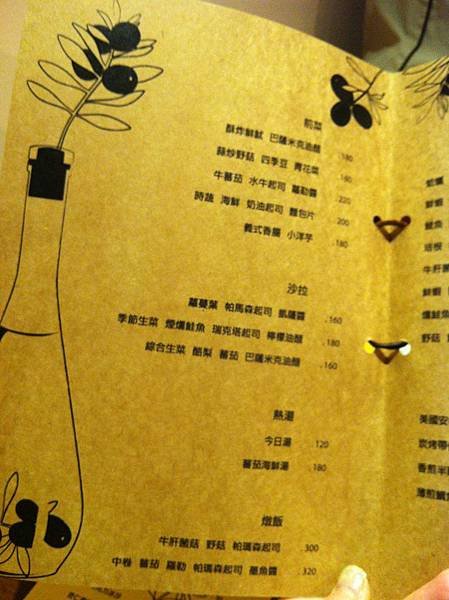 前菜
酥炸鮮魷 巴薩米克油醋 .180
蒜炒野菇 四季豆 青花菜 .180
牛蕃茄 水牛起司 羅勒醬 .220
時蔬 海鮮 奶油起司 麵包片 .200
義式香腸 小洋芋 .180
沙拉
蘿蔓葉 帕馬森起司 凱薩醬 .160
季節生菜 煙燻鮭魚 瑞克塔起司 檸檬油醋 .180
綜合生菜 酪梨 蕃茄 巴薩米克油醋 .160
熱湯
今日湯 .120
蕃茄海鮮湯 .180
燉飯
牛肝菌菇 野菇 帕瑪森起司 .300
中卷 蕃茄 羅勒 帕瑪森起司 墨魚醬 .320
鮮蝦
牛肝菌
鮮蝦
燻鮭魚
野菇
美國安
炭烤帶
香煎半
薄煎鯛魚